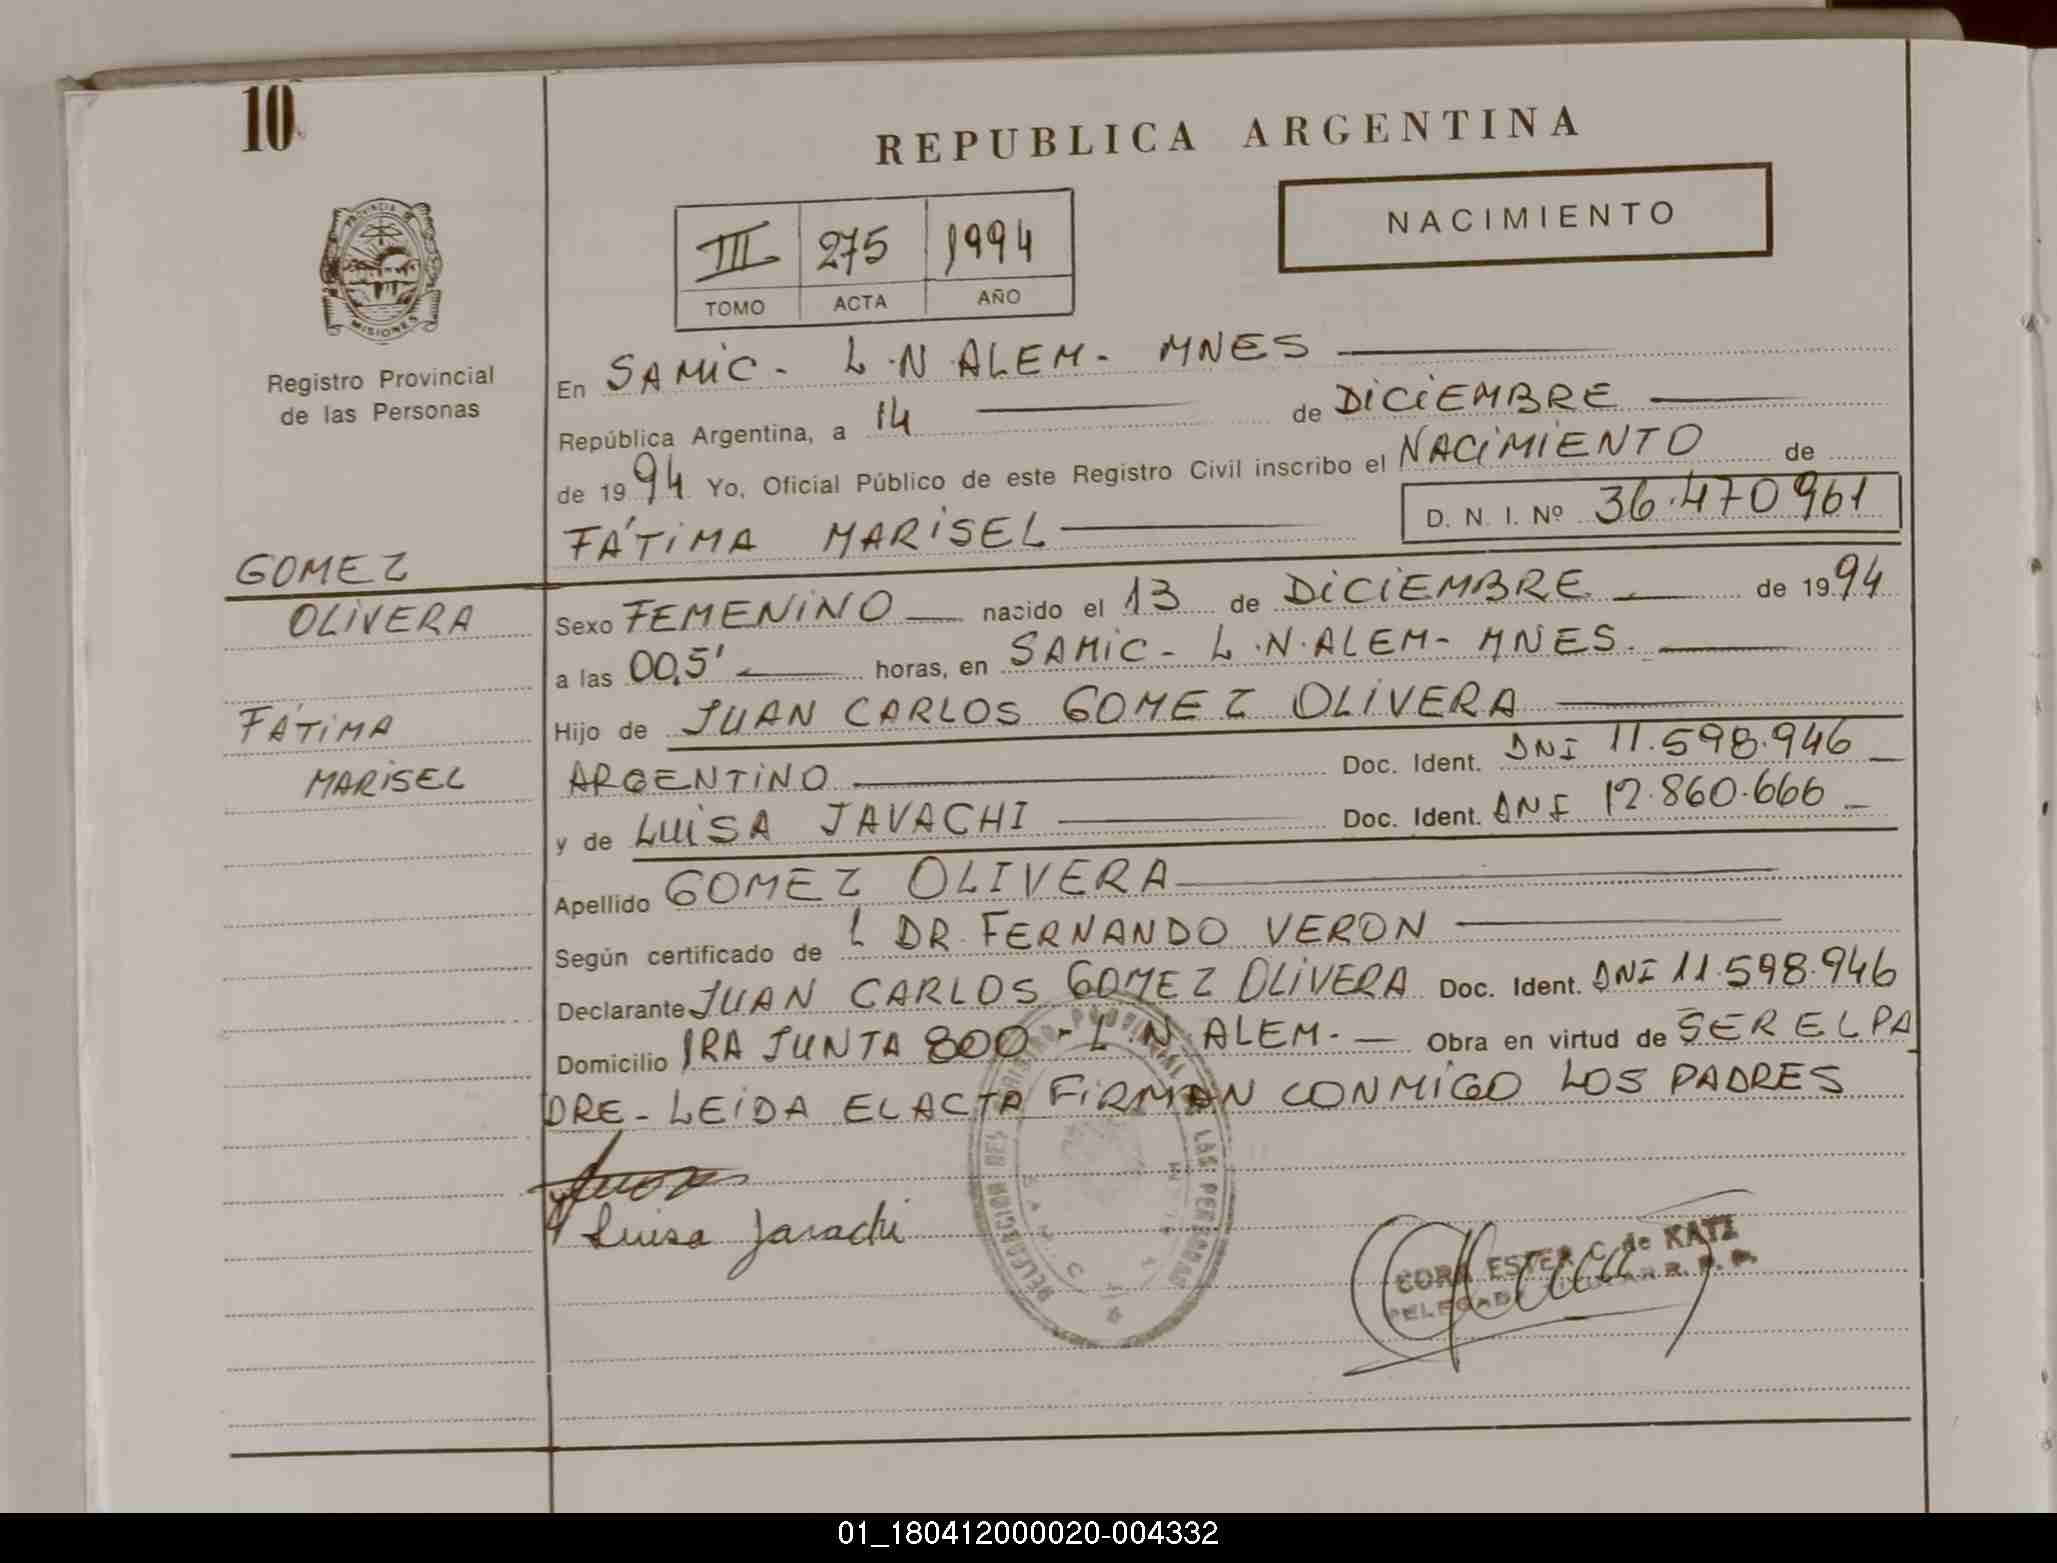 10
REPUBLICA ARGENTINA
NACIMIENTO
PROVINCIA D
MISIONES
III 275 1994
TOMO ACTA AÑO
Registro Provincial
de las Personas
En SAMIC - L.N ALEM - MNES
República Argentina, a 14 de DICIEMBRE
de 1994 Yo, Oficial Público de este Registro Civil inscribo el NACIMIENTO de
FÁTIMA MARISEL D. N. I. Nº 36.470961
GOMEZ
OLIVERA
FÁTIMA
MARISEL
Sexo FEMENINO nacido el 13 de DICIEMBRE de 1994
a las 00,5' horas, en SAMIC - L.N.ALEM - MNES.
Hijo de JUAN CARLOS GOMEZ OLIVERA
ARGENTINO Doc. Ident. DNI 11.598.946
y de LUISA JAVACHI Doc. Ident. DNI 12.860.666
Apellido GOMEZ OLIVERA
Según certificado de L DR. FERNANDO VERON
Declarante JUAN CARLOS GOMEZ OLIVERA Doc. Ident. DNI 11.598.946
Domicilio 1RA JUNTA 800 - L.N. ALEM. - Obra en virtud de SER EL PA
DRE - LEIDA EL ACTA FIRMAN CONMIGO LOS PADRES
Luisa Javachi
CORA ESTER C. de KATZ
DELEGADA TITULAR R. P. P.
01_180412000020-004332